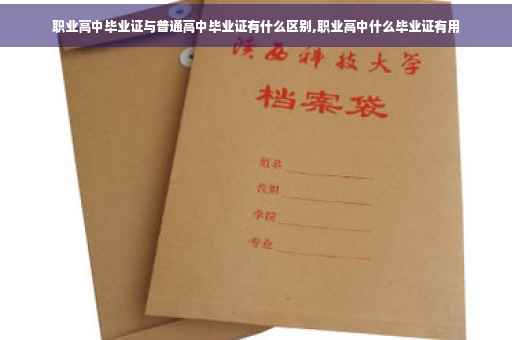 职业高中毕业证与普通高中毕业证有什么区别,职业高中什么毕业证有用
陕西科技大学
档案袋
姓名
学院
专业